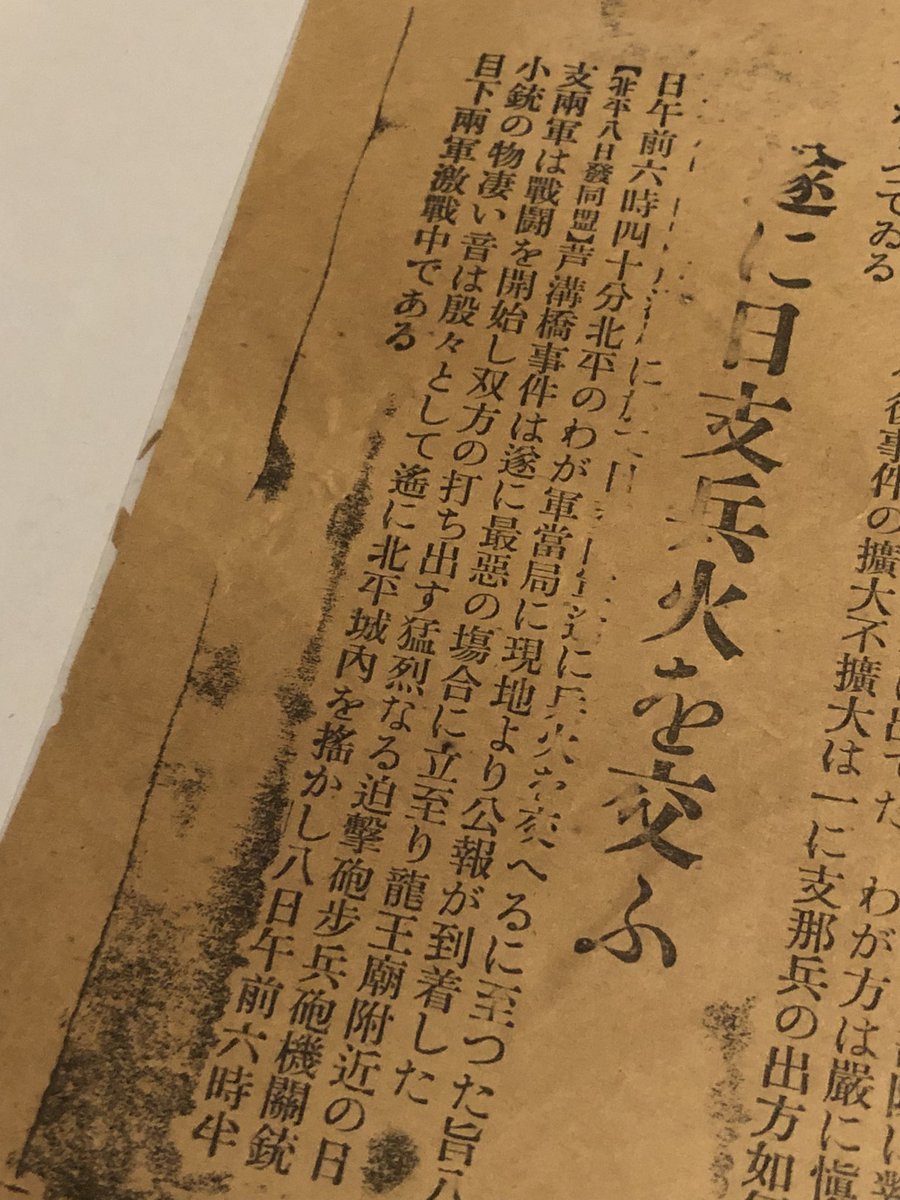 つてゐる
後事件の擴大不擴大は一に支那兵の出方如
出でた わが方は嚴に愼
遂に日支兵火を交ふ
に兵火を交へるに至つた旨八
日午前六時四十分北平のわが軍當局に現地より公報が到着した
【北平八日發同盟】芦溝橋事件は遂に最惡の場合に立至り龍王廟附近の日
支兩軍は戰鬪を開始し双方の打ち出す猛烈なる迫擊砲步兵砲機關銃
小銃の物凄い音は殷々として遙に北平城內を搖かし八日午前六時半
目下兩軍激戰中である